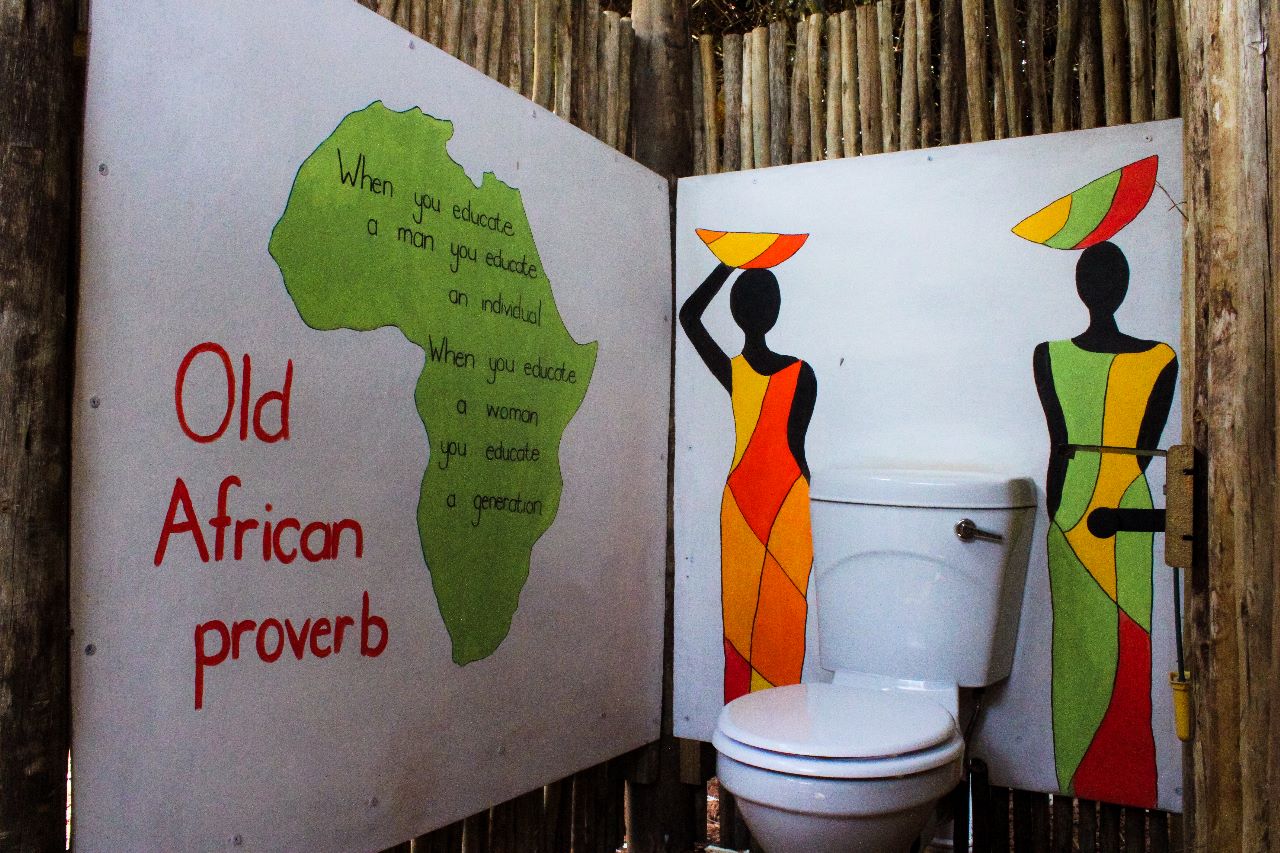 When you educate
a man you educate
an individual
When you educate
a woman
you educate
a generation
Old
African
proverb